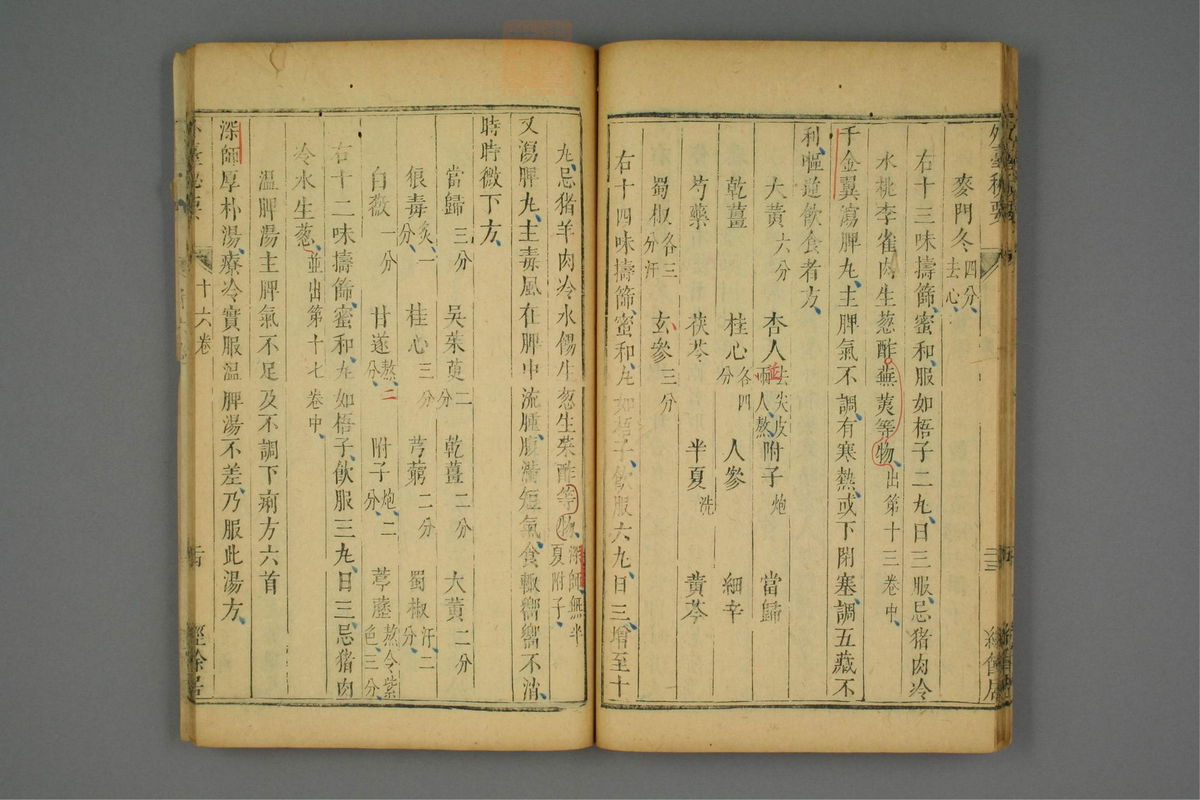 麥門冬四分去心
右十三味擣篩蜜和服如梧子二丸日三服忌猪肉冷
水桃李雀肉生葱酢蕪荑等物出第十三卷中
千金翼瀉脾丸主脾氣不調有寒熱或下閉塞調五藏不
利嘔逆飲食者方
大黃六分 杏人去尖皮兩人熬 附子炮 當歸
乾薑 桂心各四分 人參 細辛
芍藥 茯苓 半夏洗 黃芩
蜀椒各三分汗 玄參三分
右十四味擣篩蜜和丸如梧子飲服六丸日三增至十
丸忌猪羊肉冷水餳生葱生菜酢等物深師無半夏附子
又瀉脾丸主毒風在脾中流腫腹滿短氣食輒嚮嚮不消
時時微下方
當歸三分 吳茱萸二分 乾薑二分 大黃二分
狼毒炙一分 桂心三分 芎藭二分 蜀椒汗二分
白薇一分 甘遂熬二分 附子炮二分 葶藶熬令紫色三分
右十二味擣篩蜜和丸如梧子飲服三丸日三忌猪肉
冷水生葱並出第十七卷中
溫脾湯主脾氣不足及不調下痢方六首
深師厚朴湯療冷實服溫脾湯不差乃服此湯方
十六卷
經餘居